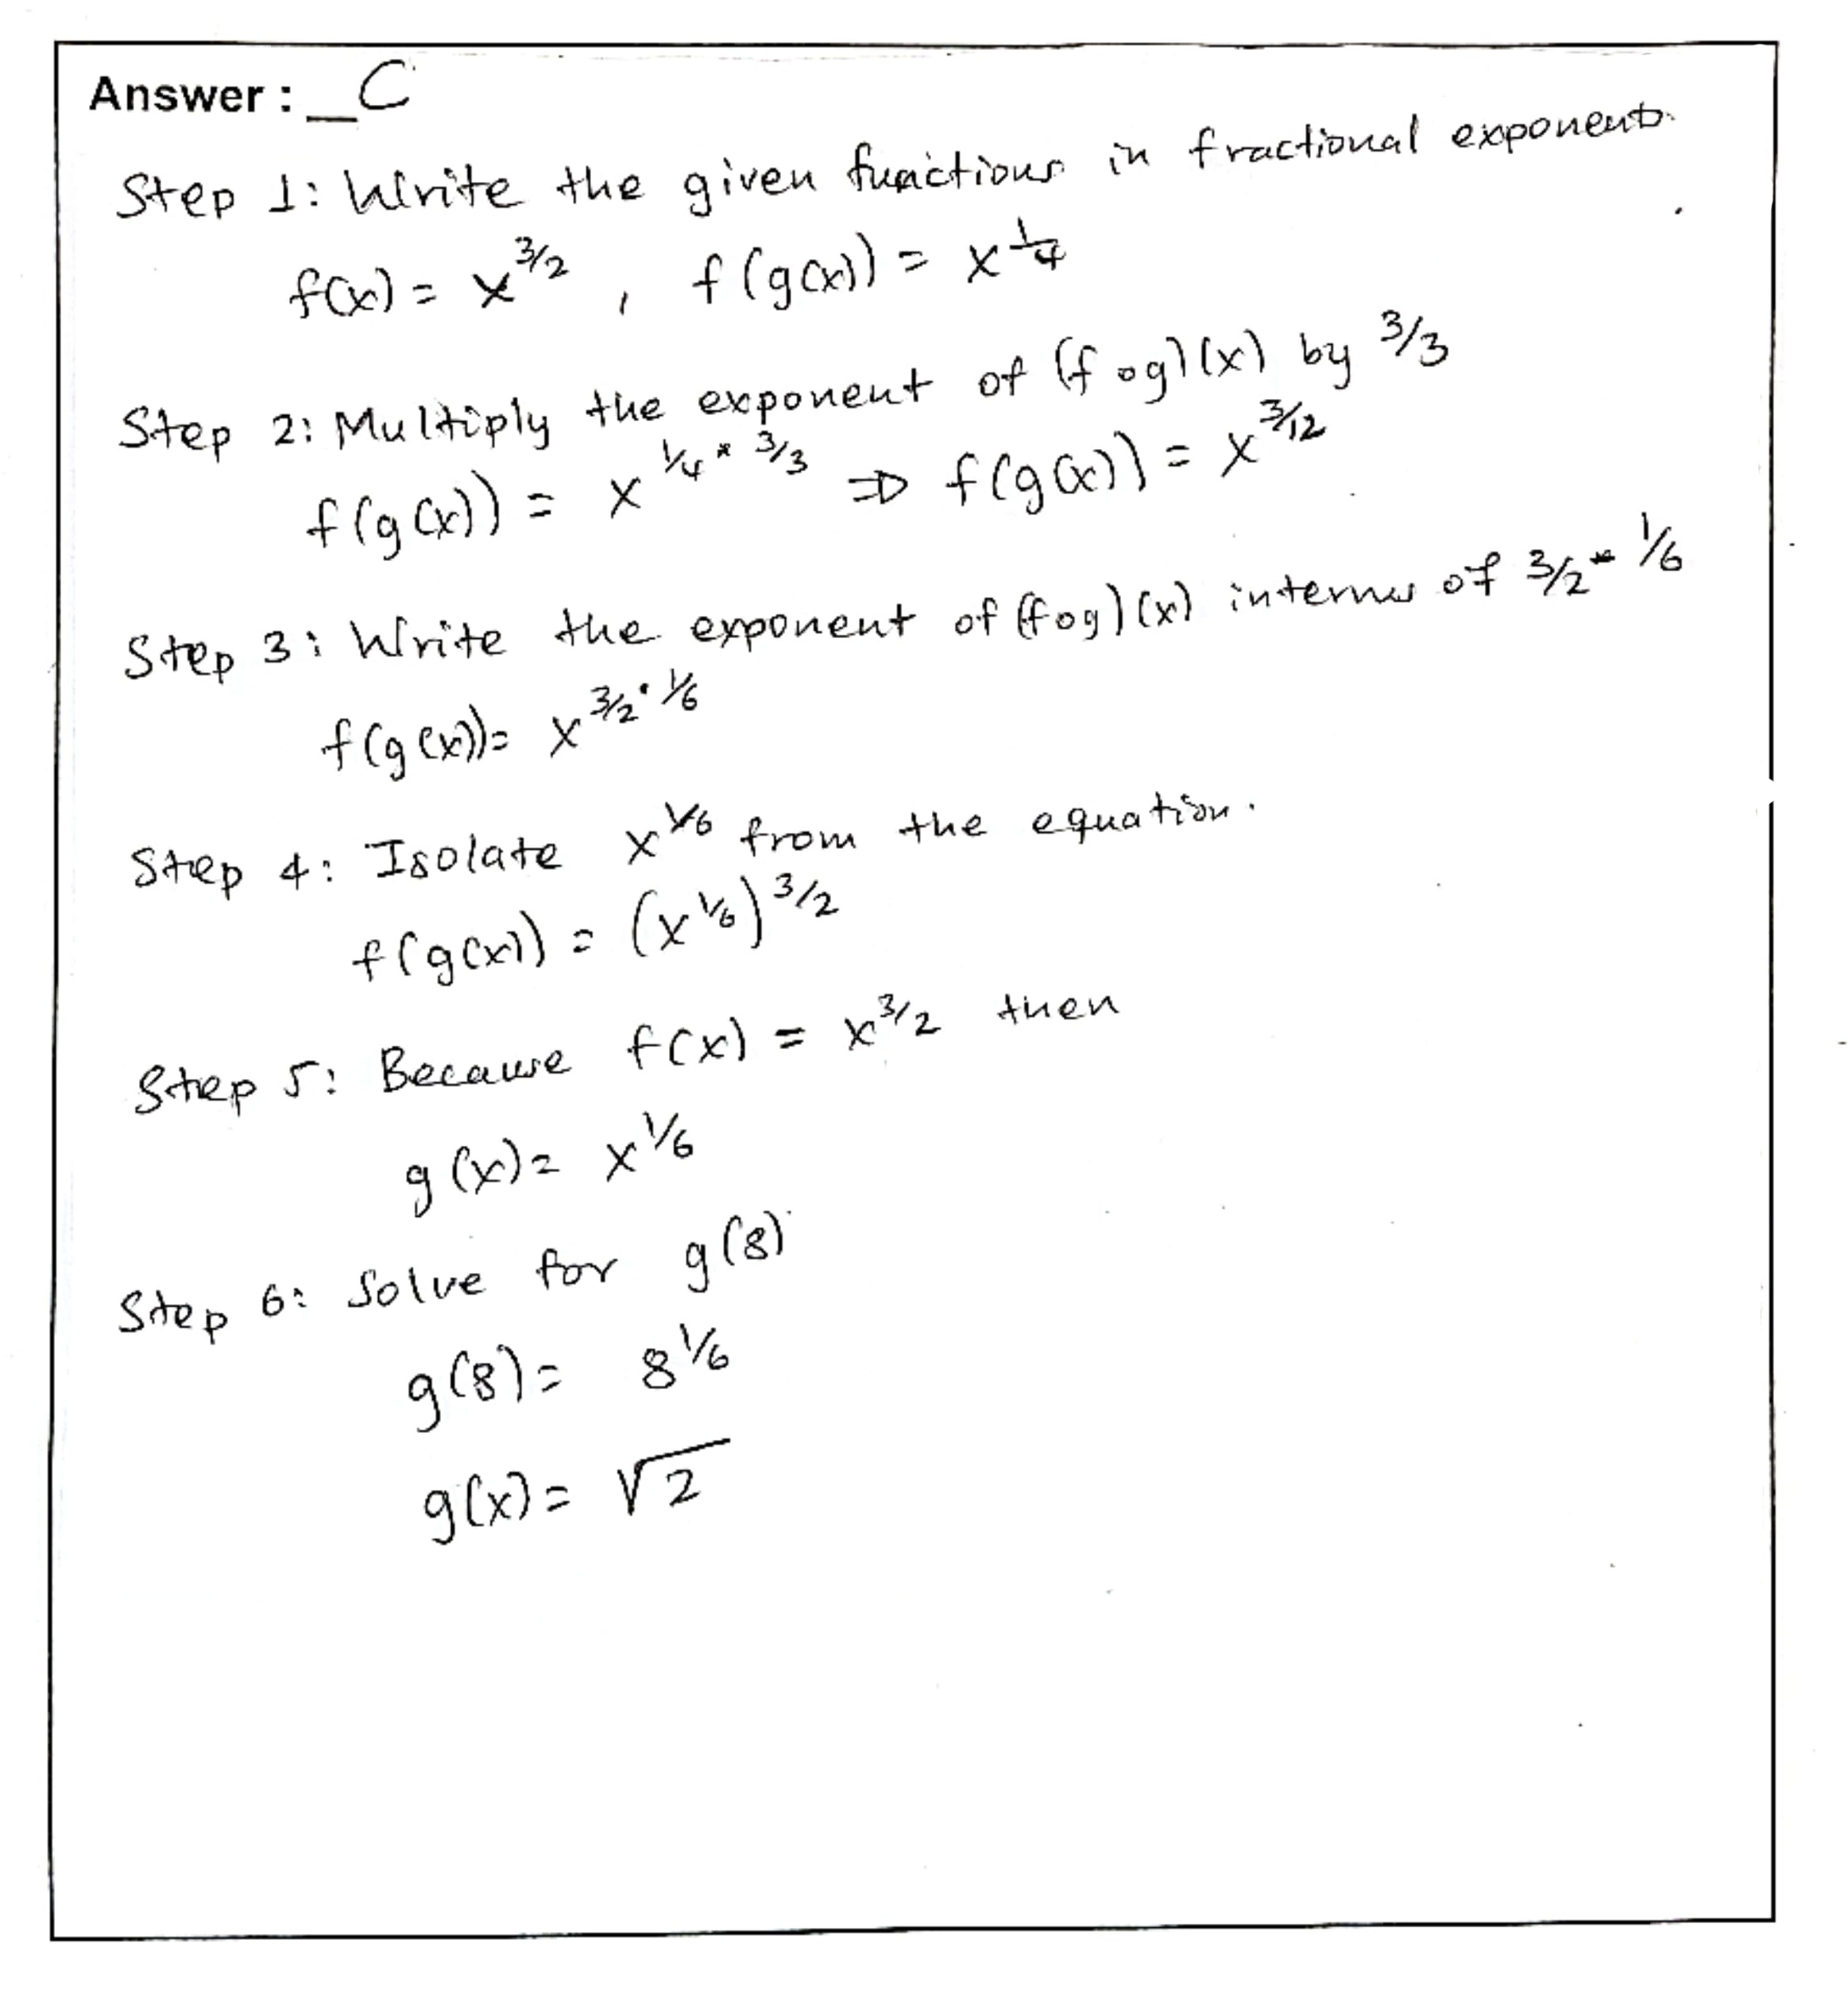 Answer : _C
Step 1: Write the given functions in fractional exponents.
f(x) = x^3/2 , f(g(x)) = x^1/4
Step 2: Multiply the exponent of (fog)(x) by 3/3
f(g(x)) = x^1/4 * 3/3 ⇒ f(g(x)) = x^3/12
Step 3: Write the exponent of (fog)(x) interms of 3/2 * 1/6
f(g(x)) = x^3/2 · 1/6
Step 4: Isolate x^1/6 from the equation.
f(g(x)) = (x^1/6)^3/2
Step 5: Because f(x) = x^3/2 then
g(x) = x^1/6
Step 6: Solve for g(8)
g(8) = 8^1/6
g(x) = √2